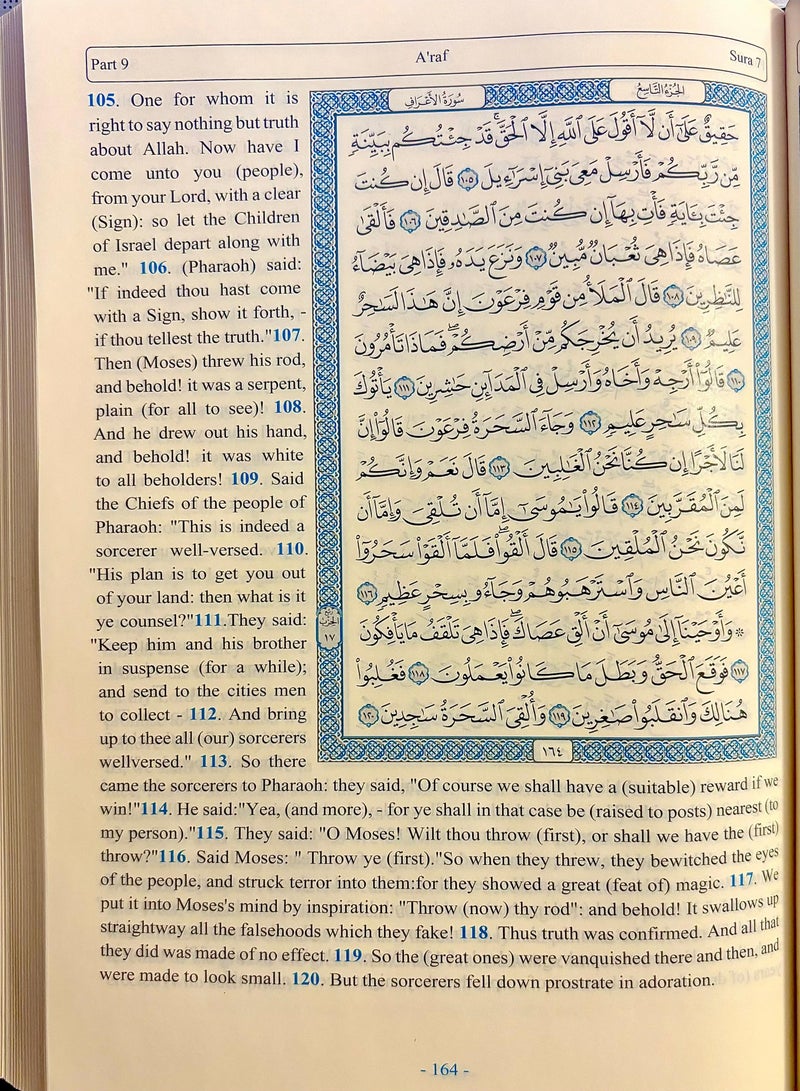 Part 9
A'raf
Sura 7
105. One for whom it is
right to say nothing but truth
about Allah. Now have I
come unto you (people),
from your Lord, with a clear
(Sign): so let the Children
of Israel depart along with
me." 106. (Pharaoh) said:
"If indeed thou hast come
with a Sign, show it forth, -
if thou tellest the truth."107.
Then (Moses) threw his rod,
and behold! it was a serpent,
plain (for all to see)! 108.
And he drew out his hand,
and behold! it was white
to all beholders! 109. Said
the Chiefs of the people of
Pharaoh: "This is indeed a
sorcerer well-versed. 110.
"His plan is to get you out
of your land: then what is it
ye counsel?"111.They said:
"Keep him and his brother
in suspense (for a while);
and send to the cities men
to collect - 112. And bring
up to thee all (our) sorcerers
wellversed." 113. So there
سُورَةُ الأَعْرَافِ
الجُزْءُ التَّاسِعُ
حَقِيقٌ عَلَىٰٓ أَن لَّآ أَقُولَ عَلَى ٱللَّهِ إِلَّا ٱلْحَقَّۚ قَدْ جِئْتُكُم بِبَيِّنَةٍ
مِّن رَّبِّكُمْ فَأَرْسِلْ مَعِىَ بَنِىٓ إِسْرَٰٓءِيلَ ١٠٥ قَالَ إِن كُنتَ
جِئْتَ بِـَٔايَةٍ فَأْتِ بِهَآ إِن كُنتَ مِنَ ٱلصَّـٰدِقِينَ ١٠٦ فَأَلْقَىٰ
عَصَاهُ فَإِذَا هِىَ ثُعْبَانٌ مُّبِينٌ ١٠٧ وَنَزَعَ يَدَهُۥ فَإِذَا هِىَ بَيْضَآءُ
لِلنَّـٰظِرِينَ ١٠٨ قَالَ ٱلْمَلَأُ مِن قَوْمِ فِرْعَوْنَ إِنَّ هَـٰذَا لَسَـٰحِرٌ
عَلِيمٌ ١٠٩ يُرِيدُ أَن يُخْرِجَكُم مِّنْ أَرْضِكُمْۖ فَمَاذَا تَأْمُرُونَ
١١٠ قَالُوٓا۟ أَرْجِهْ وَأَخَاهُ وَأَرْسِلْ فِى ٱلْمَدَآئِنِ حَـٰشِرِينَ ١١١ يَأْتُوكَ
بِكُلِّ سَـٰحِرٍ عَلِيمٍ ١١٢ وَجَآءَ ٱلسَّحَرَةُ فِرْعَوْنَ قَالُوٓا۟ إِنَّ
لَنَا لَأَجْرًا إِن كُنَّا نَحْنُ ٱلْغَـٰلِبِينَ ١١٣ قَالَ نَعَمْ وَإِنَّكُمْ
لَمِنَ ٱلْمُقَرَّبِينَ ١١٤ قَالُوا۟ يَـٰمُوسَىٰٓ إِمَّآ أَن تُلْقِىَ وَإِمَّآ أَن
نَّكُونَ نَحْنُ ٱلْمُلْقِينَ ١١٥ قَالَ أَلْقُوا۟ۖ فَلَمَّآ أَلْقَوْا۟ سَحَرُوٓا۟
أَعْيُنَ ٱلنَّاسِ وَٱسْتَرْهَبُوهُمْ وَجَآءُو بِسِحْرٍ عَظِيمٍ ١١٦
۞ وَأَوْحَيْنَآ إِلَىٰ مُوسَىٰٓ أَنْ أَلْقِ عَصَاكَۖ فَإِذَا هِىَ تَلْقَفُ مَا يَأْفِكُونَ
١١٧ فَوَقَعَ ٱلْحَقُّ وَبَطَلَ مَا كَانُوا۟ يَعْمَلُونَ ١١٨ فَغُلِبُوا۟
هُنَالِكَ وَٱنقَلَبُوا۟ صَـٰغِرِينَ ١١٩ وَأُلْقِىَ ٱلسَّحَرَةُ سَـٰجِدِينَ ١٢٠
ربع
الحزب
١٧
١٦٤
came the sorcerers to Pharaoh: they said, "Of course we shall have a (suitable) reward if we
win!"114. He said:"Yea, (and more), - for ye shall in that case be (raised to posts) nearest (to
my person)."115. They said: "O Moses! Wilt thou throw (first), or shall we have the (first)
throw?"116. Said Moses: " Throw ye (first)."So when they threw, they bewitched the eyes
of the people, and struck terror into them:for they showed a great (feat of) magic. 117. We
put it into Moses's mind by inspiration: "Throw (now) thy rod": and behold! It swallows up
straightway all the falsehoods which they fake! 118. Thus truth was confirmed. And all that
they did was made of no effect. 119. So the (great ones) were vanquished there and then, and
were made to look small. 120. But the sorcerers fell down prostrate in adoration.
- 164 -